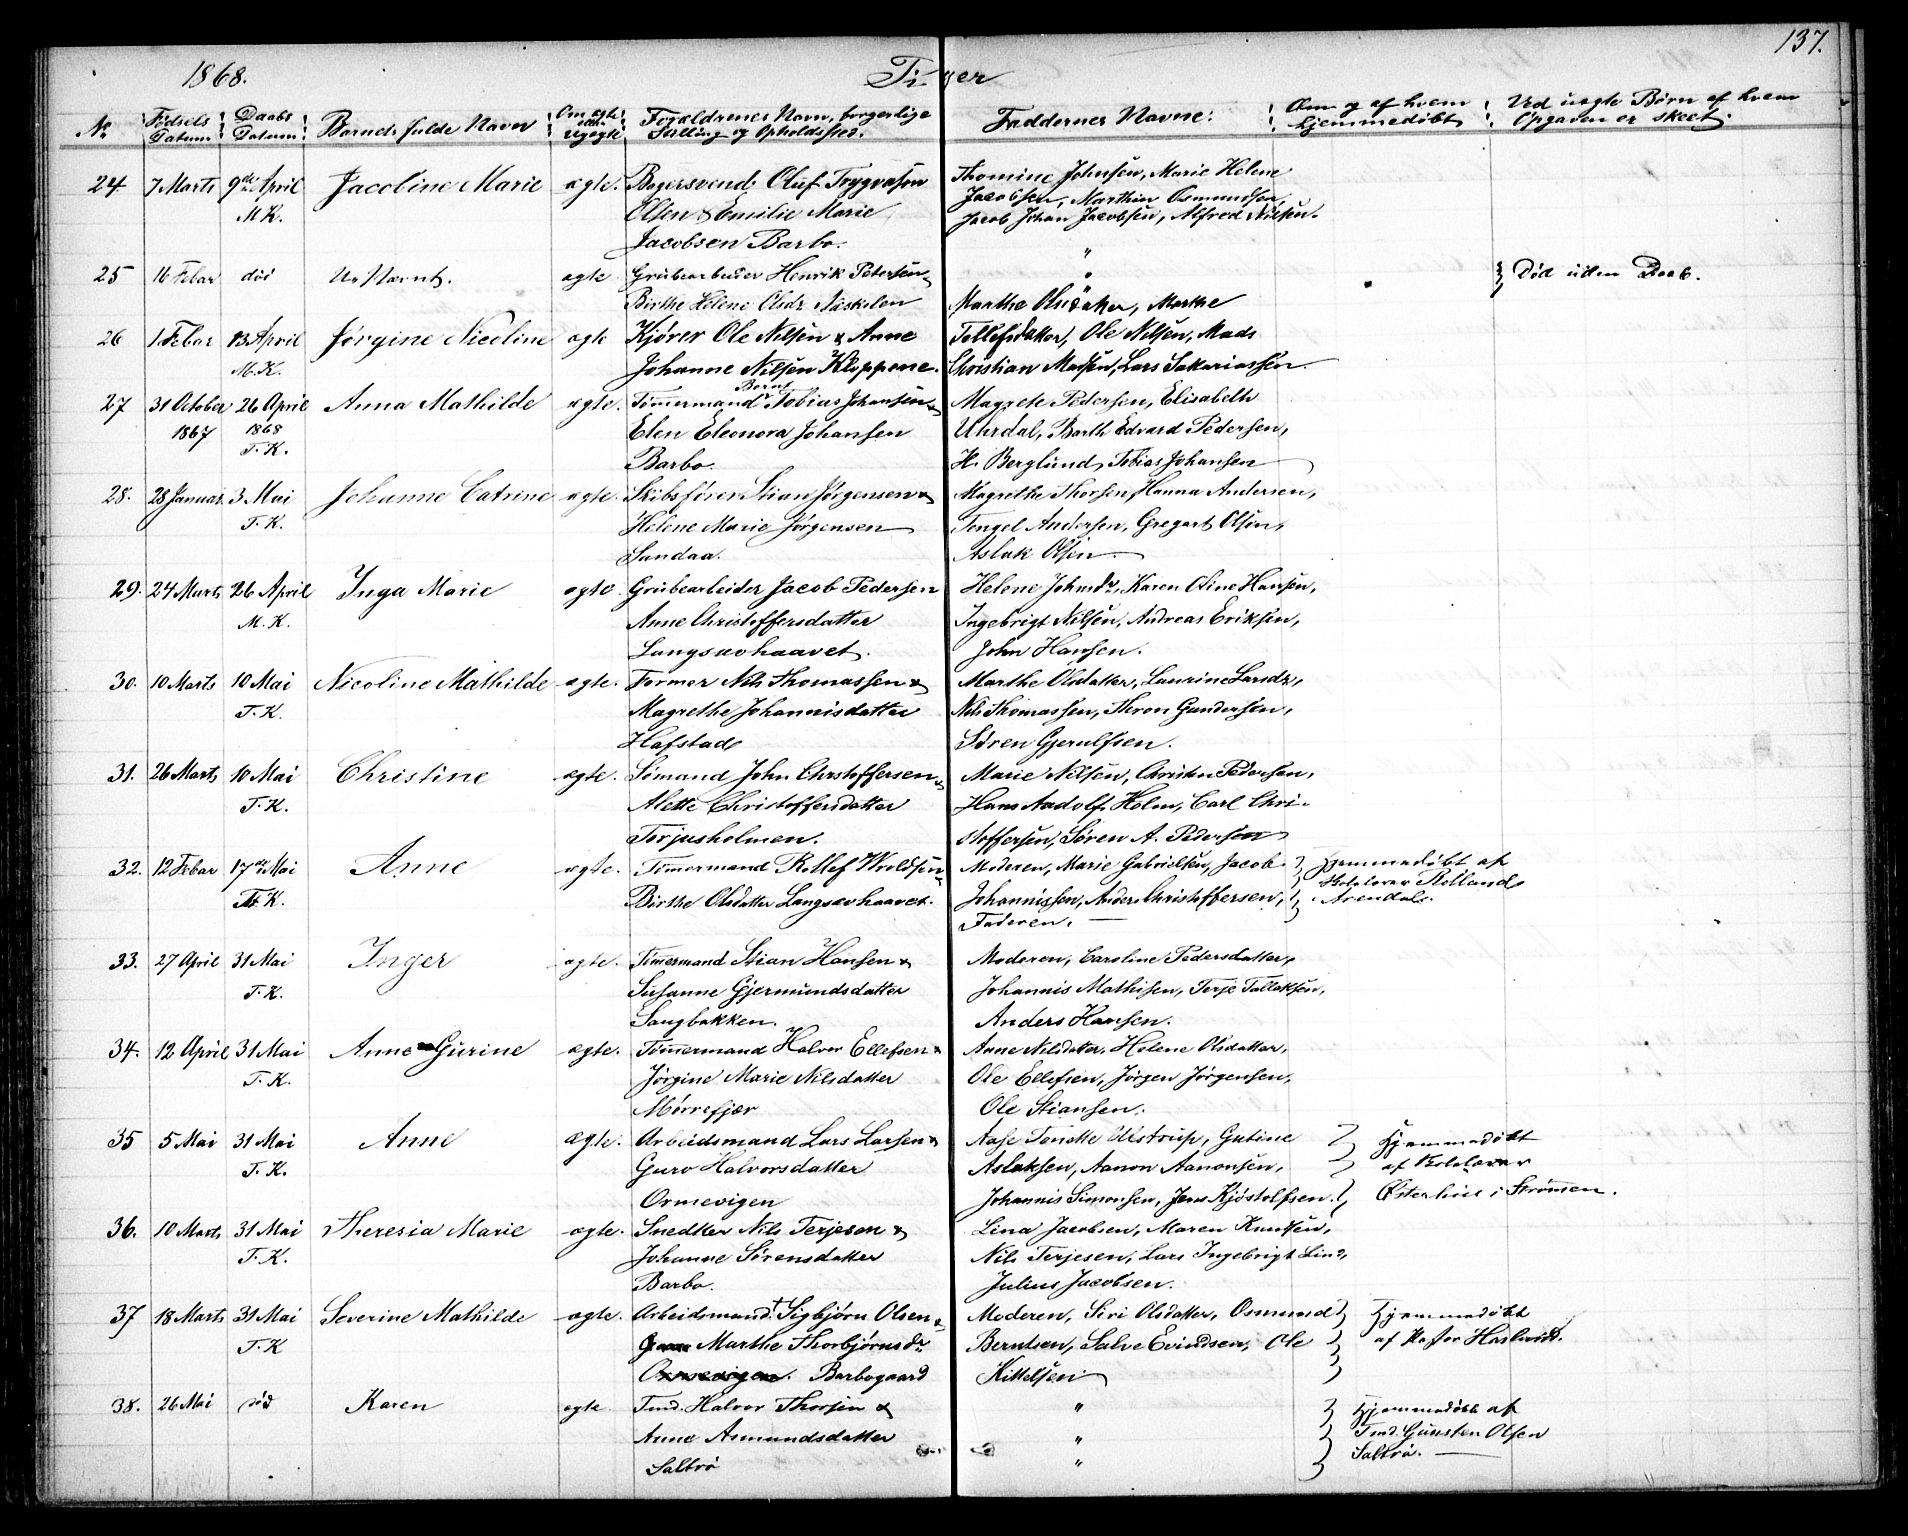 137.
1868.
Piger
No
Fødsels Datum
Daabs Datum
Barnets fulde Navn
Om ægte eller uægte
Foræældrenes Navn, borgerlige Stilling og Opholdssted.
Faddernes Navne.
Om og af hvem hjemmedøbt
Ved uægte Børn af hvem Opgaven er skeet.
24. 7 Marts 9de April Jacoline Marie ægte. Bagersvend Oluf Trygvason Thomine Johnsen, Marie Helene
M.K. Olsen & Emilie Marie Jacobsen, Marthin Osmundsen,
Jacobsen Barbo. Jacob Johan Jacobsen, Alfred Nilsen.
"
25 16 Febar død Unævnt. ægte Grubearbeider Henrik Petersen " Død uden Daab.
Birthe Helene Olsdr Næskilen Marthe Olsdatter, Marthe
26 1 Febar 13 April Jørgine Nicoline ægte Kjører Ole Nilsen & Anne Tellefsdatter, Ole Nilsen, Mads
M.K. Johanne Nilsen Kloppene. Christian Madsen, Lars Sakariassen.
27 31 October 26 April Anna Mathilde ægte. Tømermand Bernt Tobias Johansen & Magrete Pedersen, Elisabeth
1867 1868 Elen Eleonora Johansen Uhrdal, Barth Edvard Pedersen,
T.K. Barbo. H. Berglund, Tobias Johansen
28. 28 Januar 3. Mai Johanne Catrine ægte Skibsfører Stian Jørgensen & Magrethe Thorsen, Hanna Andersen,
T.K. Helene Marie Jørgensen Tengel Andersen, Gregert Olsen,
Sandaa. Aslak Olsen
29. 24 Marts 26 April Inga Marie ægte. Grubearbeider Jacob Pedersen Helene Johnsdr, Karen Oline Hansen,
M.K. Anne Christoffersdatter Ingebrigt Nilsen, Andreas Eriksen,
Langsævhaavet. John Hansen.
30. 10 Marts 10 Mai Nicoline Mathilde ægte. Former Nils Thomassen & Marthe Olsdatter, Laurine Larsdr,
T.K. Magrethe Johannisdatter Nils Thomassen, Thron Gundersen,
Hafstad Søren Gjerulfsen.
31. 26 Marts 10 Mai Christine ægte. Sømand John Chrstoffersen & Marie Nilsen, Christen Pedersen,
T.K. Alette Christoffersdatter Hans Aadolf Holm, Carl Chri-
Torjusholmen. stoffersen, Søren A. Pedersen
32. 12 Febar 17de Mai Anne ægte. Tømermand Rollef Wroldsen Moderen, Marie Gabrielsen, Jacob Hjemmedøbt af
T.K. Birthe Olsdatter Langsævhaavet. Johannissen, Anders Christoffersen, Skolelærer Rolland
Faderen. Arendal.
33. 27 April 31 Mai Inger ægte. Tømermand Stian Hansen & Moderen, Caroline Pedersdatter,
T.K. Susanne Gjermundsdatter Johannis Mathisen, Terje Tallaksen,
Sangbakken. Anders Hansen.
34. 12 April 31 Mai Anne Gurine ægte. Tømmermand Halvor Ellefsen & Anne Nilsdatter, Helene Olsdatter,
T.K. Jørgine Marie Nilsdatter Ole Ellefsen, Jørgen Jørgensen,
Mørrefjær Ole Stiansen.
35 5 Mai 31 Mai Anne Ægte. Arbeidsmand Lars Larsen & Aase Tonette Ulstrup, Gutine Hjemmedøbt
T.K. Guro Halvorsdatter Aslaksen, Aanon Aanonsen, af Skolelærer
Ormevigen Johannis Simonsen, Jens Kjøstolfsen. Østerhus i Strømen.
36. 10 Marts 31 Mai Theresia Marie ægte. Snedker Nils Terjesen & Lina Jacobsen, Maren Knudsen,
T.K. Johanne Sørensdatter Nils Terjesen, Lars Ingebrigt Lind,
Barbo. Julius Jacobsen.
37 18 Marts 31 Mai Severine Mathilde ægte. Arbeidsmand † Sigbjørn Olsen & Moderen, Siri Olsdatter, Osmund Hjemmedøbt
T.K Marthe Thorbjørnsdr Berntsen, Salve Evindsen, Ole af Pastor Harlund.
Ormevigen. Barbogaard Kittelsen
38. 26 Mai død Karen ægte Tmd. Halvor Thorsen & " Hjemmedøbt af
Anne Asmundsdatter " Tmd. Gunsten Olsen
Saltrø " Saltrø.